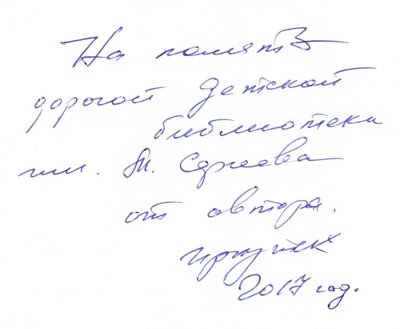 На память
дорогой детской
библиотеке
им. М. Сергеева
от автора.
Иркутск
2017 год.